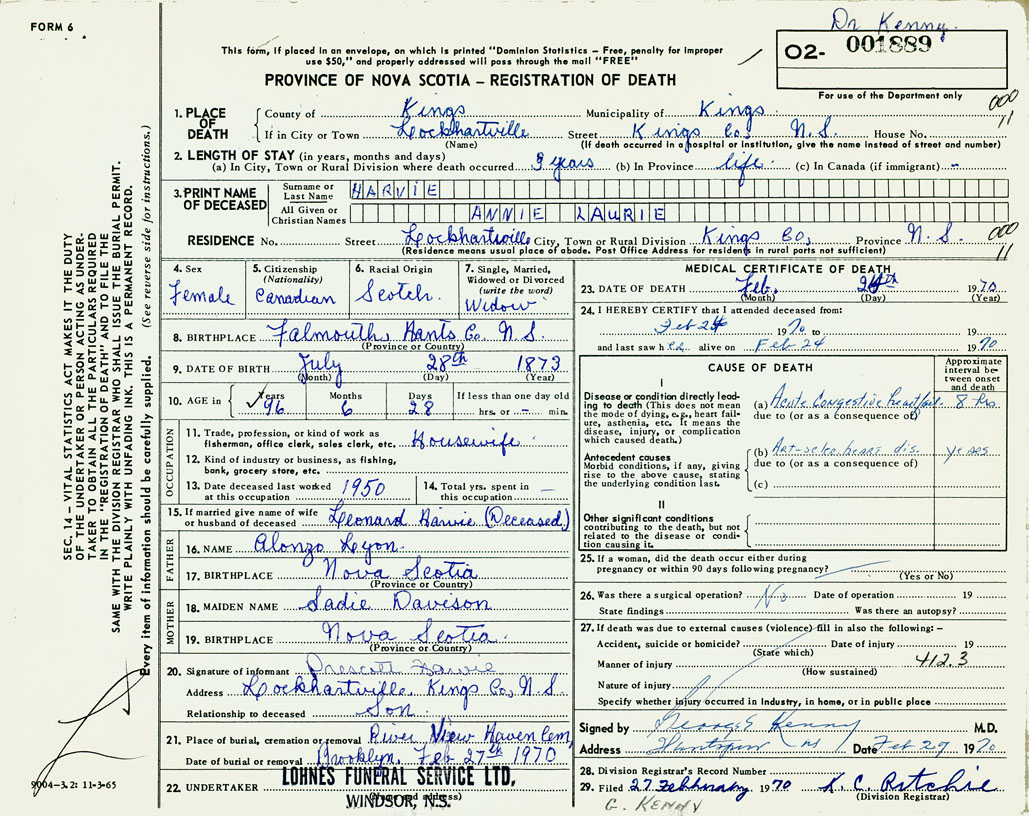 FORM 6
Dr Kenny.
This form, if placed in an envelope, on which is printed "Dominion Statistics – Free, penalty for improper
use $50," and properly addressed will pass through the mail "FREE"
O2- 001889
PROVINCE OF NOVA SCOTIA – REGISTRATION OF DEATH
For use of the Department only
000
11
1. PLACE OF DEATH { County of Kings Municipality of Kings
If in City or Town Lockhartville Street Kings Co, N.S. House No.
(Name) (If death occurred in a hospital or institution, give the name instead of street and number)
2. LENGTH OF STAY (in years, months and days)
(a) In City, Town or Rural Division where death occurred 9 years (b) In Province life. (c) In Canada (if immigrant) –
3. PRINT NAME OF DECEASED
Surname or Last Name HARVIE
All Given or Christian Names ANNIE LAURIE
000
11
RESIDENCE No. Street Lockhartville City, Town or Rural Division Kings Co, Province N.S.
(Residence means usual place of abode. Post Office Address for residents in rural parts not sufficient)
4. Sex
Female
5. Citizenship
(Nationality)
Canadian
6. Racial Origin
Scotch.
7. Single, Married,
Widowed or Divorced
(write the word)
Widow
8. BIRTHPLACE Falmouth, Hants Co. N.S.
(Province or Country)
9. DATE OF BIRTH July 28th 1873
(Month) (Day) (Year)
10. AGE in { Years 96 Months 6 Days 28 If less than one day old
hrs. or – min.
OCCUPATION
11. Trade, profession, or kind of work as
fisherman, office clerk, sales clerk, etc. Housewife.
12. Kind of industry or business, as fishing,
bank, grocery store, etc.
13. Date deceased last worked
at this occupation 1950
14. Total yrs. spent in
this occupation –
15. If married give name of wife
or husband of deceased Leonard Harvie (Deceased)
FATHER
16. NAME Alonzo Lyon.
17. BIRTHPLACE Nova Scotia
(Province or Country)
MOTHER
18. MAIDEN NAME Sadie Davison
19. BIRTHPLACE Nova Scotia.
(Province or Country)
20. Signature of informant Prescott Harvie
Address Lockhartville, Kings Co, N.S.
Relationship to deceased Son.
21. Place of burial, cremation or removal River View Haven Cem,
Date of burial or removal Brooklyn, Feb 27th 1970
22. UNDERTAKER LOHNES FUNERAL SERVICE LTD,
WINDSOR, N.S.
MEDICAL CERTIFICATE OF DEATH
23. DATE OF DEATH Feb, 24th 1970
(Month) (Day) (Year)
24. I HEREBY CERTIFY that I attended deceased from:
Feb 24 1970 to 19
and last saw her alive on Feb 24 1970
CAUSE OF DEATH
Approximate
interval be-
tween onset
and death
I
Disease or condition directly lead-
ing to death (This does not mean
the mode of dying, e.g., heart fail-
ure, asthenia, etc. It means the
disease, injury, or complication
which caused death.)
(a) Acute Congestive heart fail. 8 hrs
due to (or as a consequence of)
Antecedent causes
Morbid conditions, if any, giving
rise to the above cause, stating
the underlying condition last.
(b) Art-sclero. heart dis. years
due to (or as a consequence of)
(c)
II
Other significant conditions
contributing to the death, but not
related to the disease or condi-
tion causing it.
25. If a woman, did the death occur either during
pregnancy or within 90 days following pregnancy?
(Yes or No)
26. Was there a surgical operation? No Date of operation 19
State findings Was there an autopsy?
27. If death was due to external causes (violence) fill in also the following: –
Accident, suicide or homicide? Date of injury 19
(State which)
Manner of injury 412.3
(How sustained)
Nature of injury
Specify whether injury occurred in Industry, in home, or in public place
Signed by George S Kenny M.D.
Address Hantsport NS Date Feb 27 1970
28. Division Registrar's Record Number
29. Filed 27 February 1970 K. C. Ritchie
(Division Registrar)
G. KENNY
SEC. 14 – VITAL STATISTICS ACT MAKES IT THE DUTY
OF THE UNDERTAKER OR PERSON ACTING AS UNDER-
TAKER TO OBTAIN ALL THE PARTICULARS REQUIRED
IN THE "REGISTRATION OF DEATH" AND TO FILE THE
SAME WITH THE DIVISION REGISTRAR WHO SHALL ISSUE THE BURIAL PERMIT.
WRITE PLAINLY WITH UNFADING INK. THIS IS A PERMANENT RECORD.
Every item of information should be carefully supplied. (See reverse side for instructions.)
9004-3.2: 11-3-65